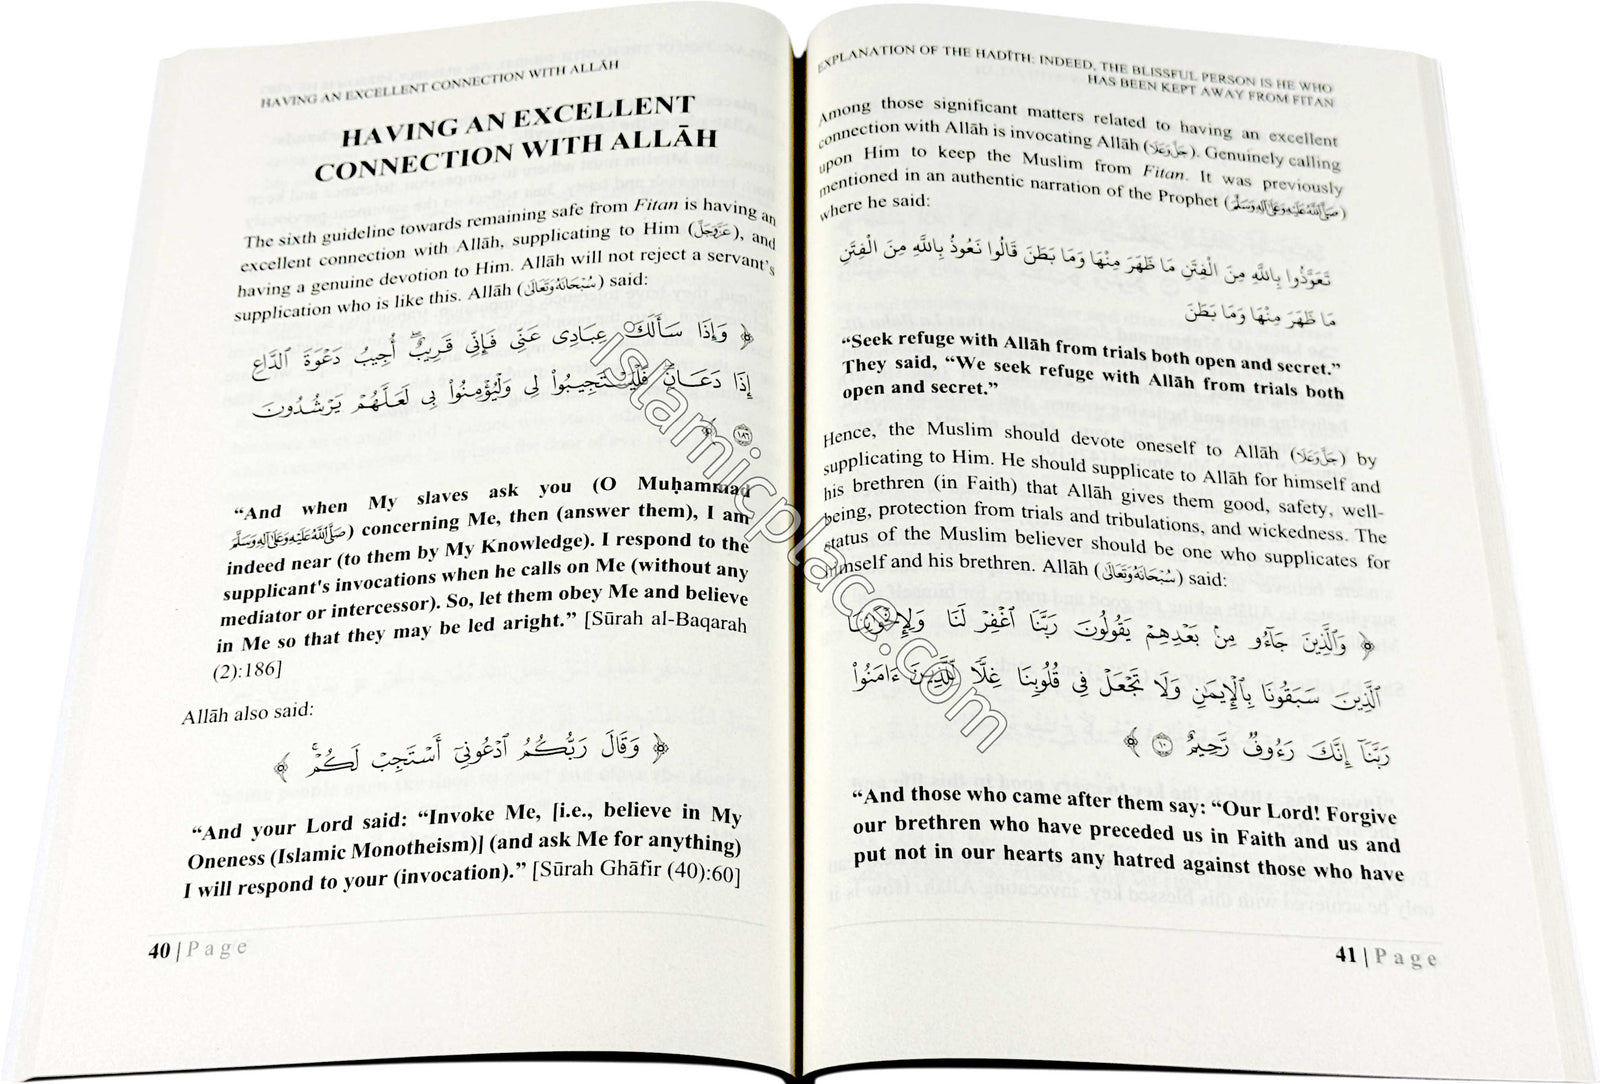 HAVING AN EXCELLENT CONNECTION WITH ALLĀH
HAVING AN EXCELLENT
CONNECTION WITH ALLĀH
The sixth guideline towards remaining safe from Fitan is having an
excellent connection with Allāh, supplicating to Him (عَزَّوَجَلَّ), and
having a genuine devotion to Him. Allāh will not reject a servant's
supplication who is like this. Allāh (سُبْحَانَهُ وَتَعَالَىٰ) said:
﴿ وَإِذَا سَأَلَكَ عِبَادِى عَنِّى فَإِنِّى قَرِيبٌ ۖ أُجِيبُ دَعْوَةَ ٱلدَّاعِ
إِذَا دَعَانِ ۖ فَلْيَسْتَجِيبُوا۟ لِى وَلْيُؤْمِنُوا۟ بِى لَعَلَّهُمْ يَرْشُدُونَ
١٨٦ ﴾
“And when My slaves ask you (O Muḥammad
صَلَّى ٱللَّهُ عَلَيْهِ وَعَلَىٰ آلِهِ وَسَلَّمَ) concerning Me, then (answer them), I am
indeed near (to them by My Knowledge). I respond to the
supplicant's invocations when he calls on Me (without any
mediator or intercessor). So, let them obey Me and believe
in Me so that they may be led aright.” [Sūrah al-Baqarah
(2):186]
Allāh also said:
﴿ وَقَالَ رَبُّكُمُ ٱدْعُونِىٓ أَسْتَجِبْ لَكُمْ ۚ ﴾
“And your Lord said: “Invoke Me, [i.e., believe in My
Oneness (Islamic Monotheism)] (and ask Me for anything)
I will respond to your (invocation).” [Sūrah Ghāfir (40):60]
40 | Page
EXPLANATION OF THE HADĪTH: INDEED, THE BLISSFUL PERSON IS HE WHO
HAS BEEN KEPT AWAY FROM FITAN
Among those significant matters related to having an excellent
connection with Allāh is invocating Allāh (جَلَّ وَعَلَا). Genuinely calling
upon Him to keep the Muslim from Fitan. It was previously
mentioned in an authentic narration of the Prophet (صَلَّى ٱللَّهُ عَلَيْهِ وَعَلَىٰ آلِهِ وَسَلَّمَ)
where he said:
تَعَوَّذُوا بِاللَّهِ مِنَ الْفِتَنِ مَا ظَهَرَ مِنْهَا وَمَا بَطَنَ قَالُوا نَعُوذُ بِاللَّهِ مِنَ الْفِتَنِ
مَا ظَهَرَ مِنْهَا وَمَا بَطَنَ
“Seek refuge with Allāh from trials both open and secret.”
They said, “We seek refuge with Allāh from trials both
open and secret.”
Hence, the Muslim should devote oneself to Allāh (جَلَّ وَعَلَا) by
supplicating to Him. He should supplicate to Allāh for himself and
his brethren (in Faith) that Allāh gives them good, safety, well-
being, protection from trials and tribulations, and wickedness. The
status of the Muslim believer should be one who supplicates for
himself and his brethren. Allāh (سُبْحَانَهُ وَتَعَالَىٰ) said:
﴿ وَٱلَّذِينَ جَآءُو مِنۢ بَعْدِهِمْ يَقُولُونَ رَبَّنَا ٱغْفِرْ لَنَا وَلِإِخْوَٰنِنَا
ٱلَّذِينَ سَبَقُونَا بِٱلْإِيمَٰنِ وَلَا تَجْعَلْ فِى قُلُوبِنَا غِلًّا لِّلَّذِينَ ءَامَنُوا۟
رَبَّنَآ إِنَّكَ رَءُوفٌ رَّحِيمٌ ١٠ ﴾
“And those who came after them say: “Our Lord! Forgive
our brethren who have preceded us in Faith and us and
put not in our hearts any hatred against those who have
41 | Page
islamicplace.com